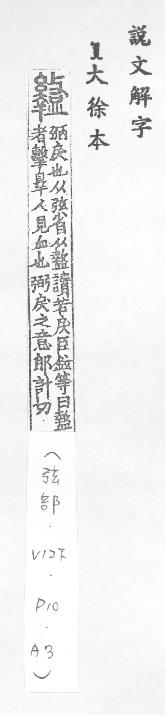 說文解字
1大徐本
盭
弼戾也从弦省从盩讀若戾臣鉉等曰盩
者擊辠人見血也弼戾之意郎計切
(弦部.V12下.P10.A3)